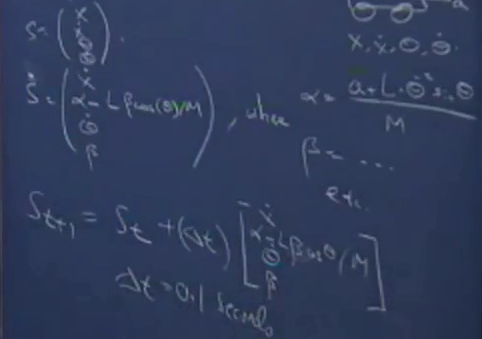 a
x, ẋ, Θ, Θ̇.
S = ( x ẋ Θ Θ̇ ).
Ṡ = ( ẋ α - Lβcos(Θ)/M Θ̇ β ), where α = a + L·Θ̇² sin Θ / M
β = ...
etc.
S_{t+1} = S_t + (Δt) [ ẋ α - Lβcos Θ/M Θ̇ β ]
Δt = 0.1 seconds